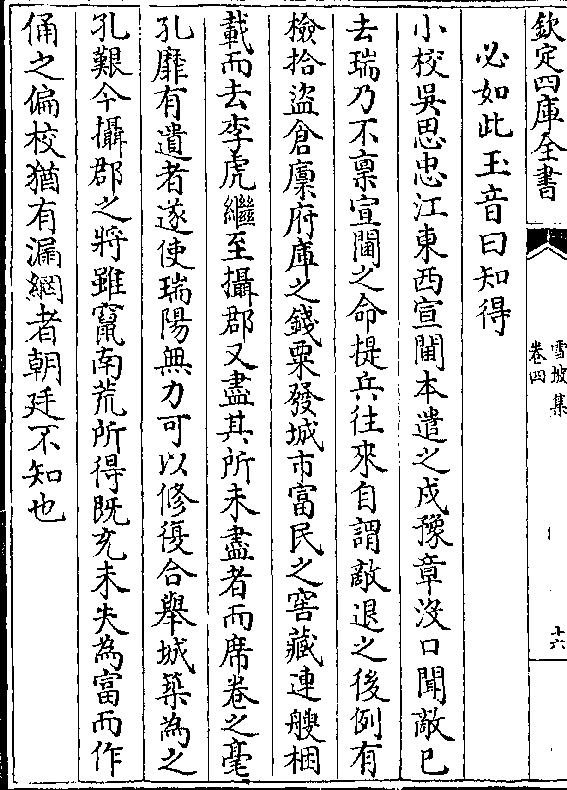 欽定四庫全書
雪坡集
卷四
十六
必如此玉音曰知得
小校吳思忠江東西宣閫本遣之戍豫章沒口聞敵已
去瑞乃不禀宣閫之命提兵往來自謂敵退之後例有
檢拾盜倉廪府庫之錢粟發城市富民之窖藏連艘梱
載而去李虎繼至攝郡又盡其所未盡者而席卷之毫
孔靡有遺者遂使瑞陽無力可以修復合舉城築為之
孔艱今攝郡之將雖竄南荒所得既充未失為富而作
俑之偏校猶有漏網者朝廷不知也